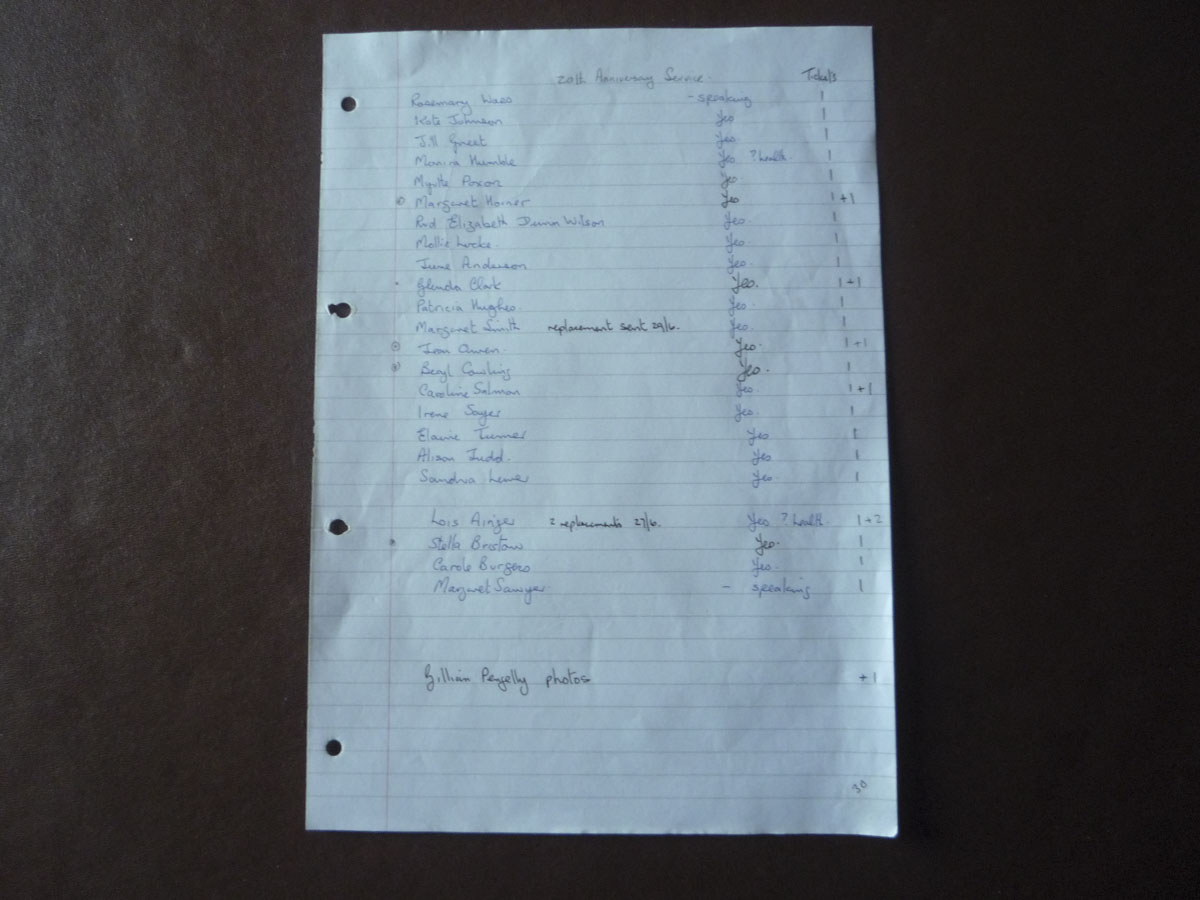 20th Anniversary Service. Tickets
Rosemary Wass - speaking 1
Kate Johnson Yes 1
Jill Greet Yes 1
Monica Humble Yes ? health. 1
Myrtle Yes 1
Margaret Horner Yes 1 + 1
Rvd Elizabeth Dunn Wilson Yes. 1
Mollie Locke. Yes 1
June Anderson Yes. 1
Glenda Clark Yes. 1 + 1
Patricia Hughes. Yes. 1
Margaret Smith replacement sent 29/6. Yes. 1
Joan Owen. Yes. 1 + 1
Beryl Yes. 1
Caroline Salmon Yes. 1 + 1
Irene Sayer Yes. 1
Elaine Turner Yes. 1
Alison Judd. Yes. 1
Sandra Lewer Yes. 1
Lois Ainger 2 replacements 27/6. Yes ? health. 1 + 2
Stella Bristow Yes. 1
Carole Burgess Yes. 1
Margaret Sawyer - speaking 1
Gillian Pengelly photos + 1
30